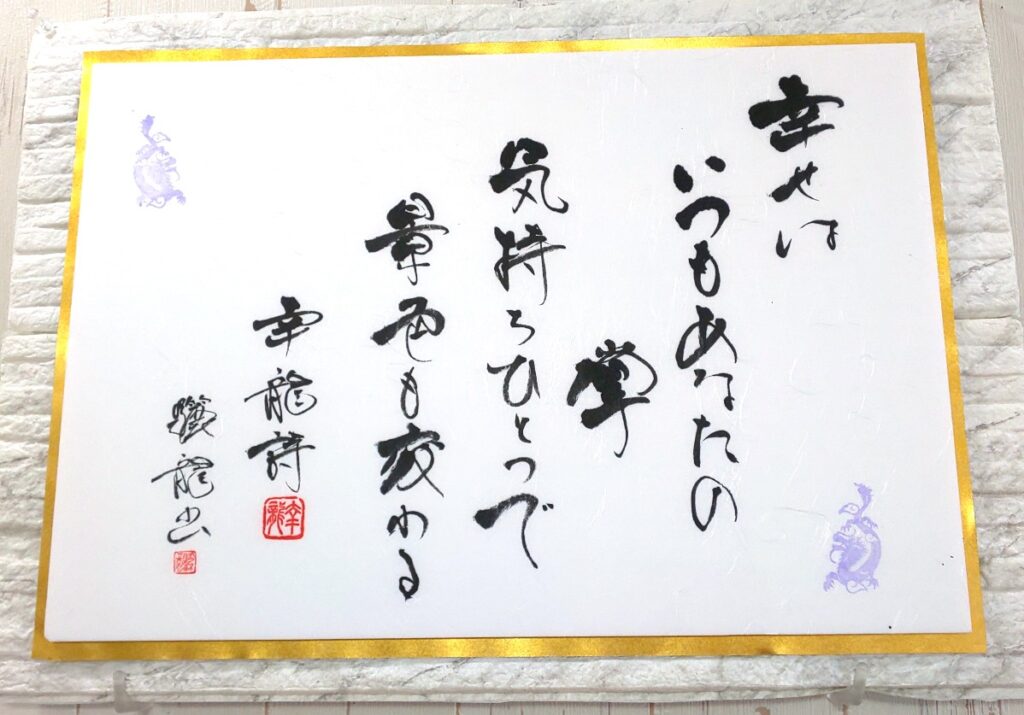 幸せは
いつもあなたの
掌
気持ちひとつで
景色も変わる
幸龍詩
幸龍
龍書